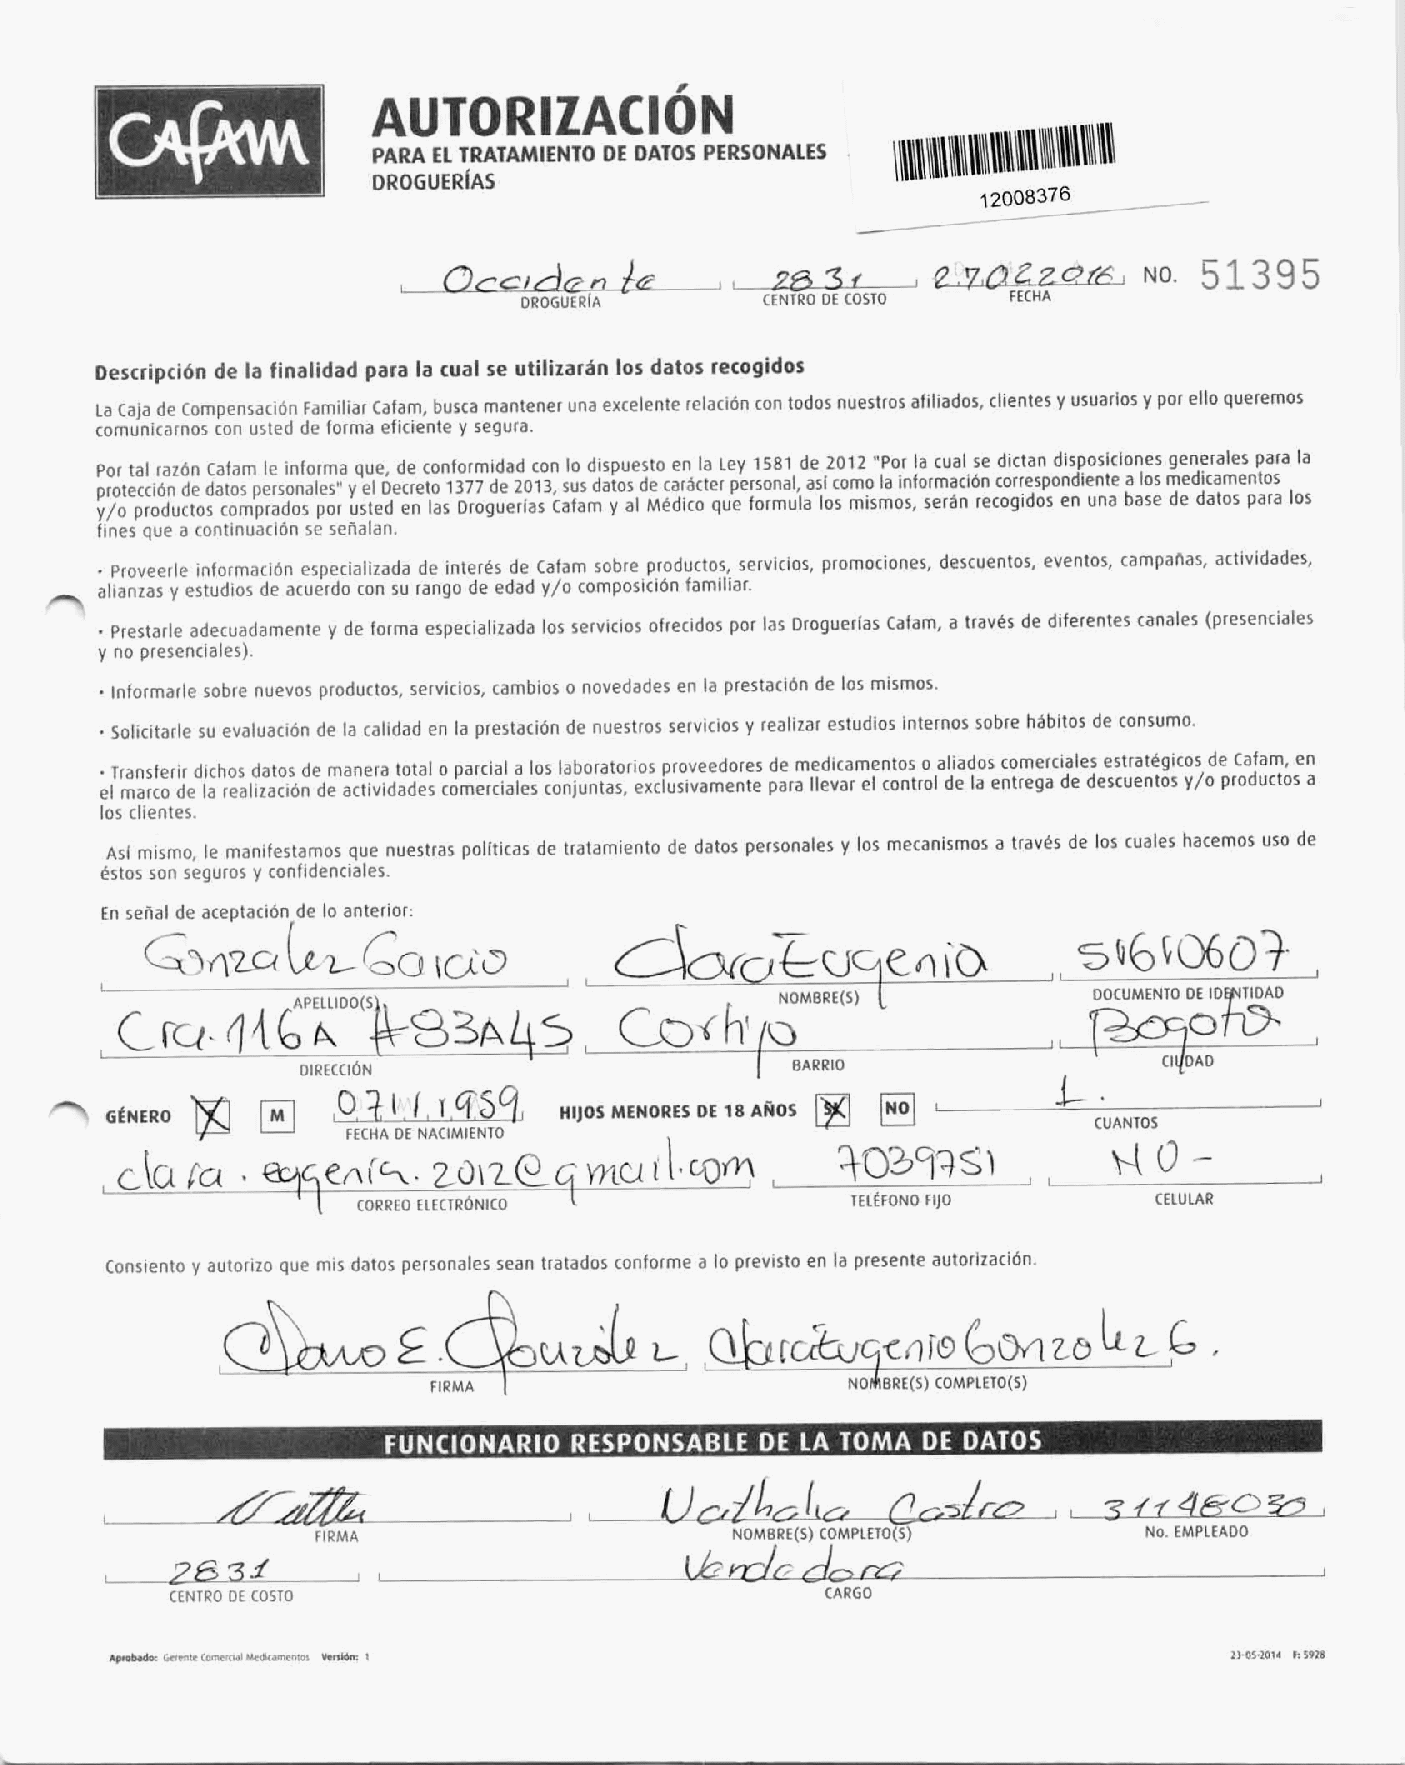 CAFAM
AUTORIZACIÓN
PARA EL TRATAMIENTO DE DATOS PERSONALES
DROGUERÍAS
12008376
Occidente 2831 27022016 NO. 51395
DROGUERÍA CENTRO DE COSTO FECHA
Descripción de la finalidad para la cual se utilizarán los datos recogidos
La Caja de Compensación Familiar Cafam, busca mantener una excelente relación con todos nuestros afiliados, clientes y usuarios y por ello queremos
comunicarnos con usted de forma eficiente y segura.
Por tal razón Cafam le informa que, de conformidad con lo dispuesto en la Ley 1581 de 2012 "Por la cual se dictan disposiciones generales para la
protección de datos personales" y el Decreto 1377 de 2013, sus datos de carácter personal, así como la información correspondiente a los medicamentos
y/o productos comprados por usted en las Droguerías Cafam y al Médico que formula los mismos, serán recogidos en una base de datos para los
fines que a continuación se señalan.
· Proveerle información especializada de interés de Cafam sobre productos, servicios, promociones, descuentos, eventos, campañas, actividades,
alianzas y estudios de acuerdo con su rango de edad y/o composición familiar.
· Prestarle adecuadamente y de forma especializada los servicios ofrecidos por las Droguerías Cafam, a través de diferentes canales (presenciales
y no presenciales).
· Informarle sobre nuevos productos, servicios, cambios o novedades en la prestación de los mismos.
· Solicitarle su evaluación de la calidad en la prestación de nuestros servicios y realizar estudios internos sobre hábitos de consumo.
· Transferir dichos datos de manera total o parcial a los laboratorios proveedores de medicamentos o aliados comerciales estratégicos de Cafam, en
el marco de la realización de actividades comerciales conjuntas, exclusivamente para llevar el control de la entrega de descuentos y/o productos a
los clientes.
Así mismo, le manifestamos que nuestras políticas de tratamiento de datos personales y los mecanismos a través de los cuales hacemos uso de
éstos son seguros y confidenciales.
En señal de aceptación de lo anterior:
Gonzalez Garcia Clara Eugenia 51610607
APELLIDO(S) NOMBRE(S) DOCUMENTO DE IDENTIDAD
Cra. 116A #83A45 Cortijo Bogotá
DIRECCIÓN BARRIO CIUDAD
GÉNERO M 07111959 HIJOS MENORES DE 18 AÑOS SI NO 1.
FECHA DE NACIMIENTO CUANTOS
clara.eugenia.2012@gmail.com 7039751 NO-
CORREO ELECTRÓNICO TELÉFONO FIJO CELULAR
Consiento y autorizo que mis datos personales sean tratados conforme a lo previsto en la presente autorización.
Clara E. Gonzalez Clara Eugenia Gonzalez G.
FIRMA NOMBRE(S) COMPLETO(S)
FUNCIONARIO RESPONSABLE DE LA TOMA DE DATOS
Nathalia Castro 31148030
FIRMA NOMBRE(S) COMPLETO(S) No. EMPLEADO
2831 Vendedora
CENTRO DE COSTO CARGO
Aprobado: Gerente Comercial Medicamentos Versión: 1 23-05-2014 F: 5928